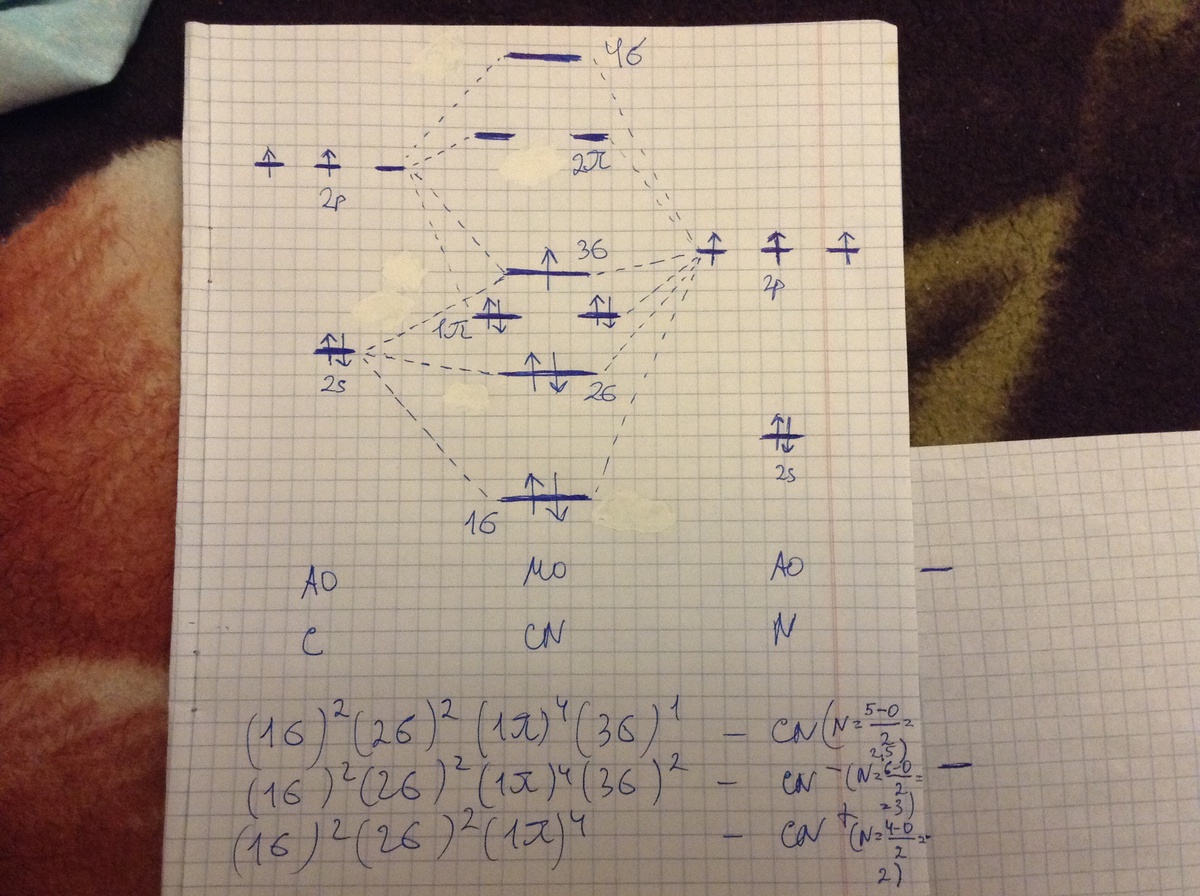 4б
2π
2p
3б
2p
1π
2s
2б
2s
1б
АО МО АО
C CN N
(1б)²(2б)²(1π)⁴(3б)¹ – CN (N=5-0/2=2,5)
(1б)²(2б)²(1π)⁴(3б)² – CN⁻ (N=6-0/2=3)
(1б)²(2б)²(1π)⁴ – CN⁺ (N=4-0/2=2)